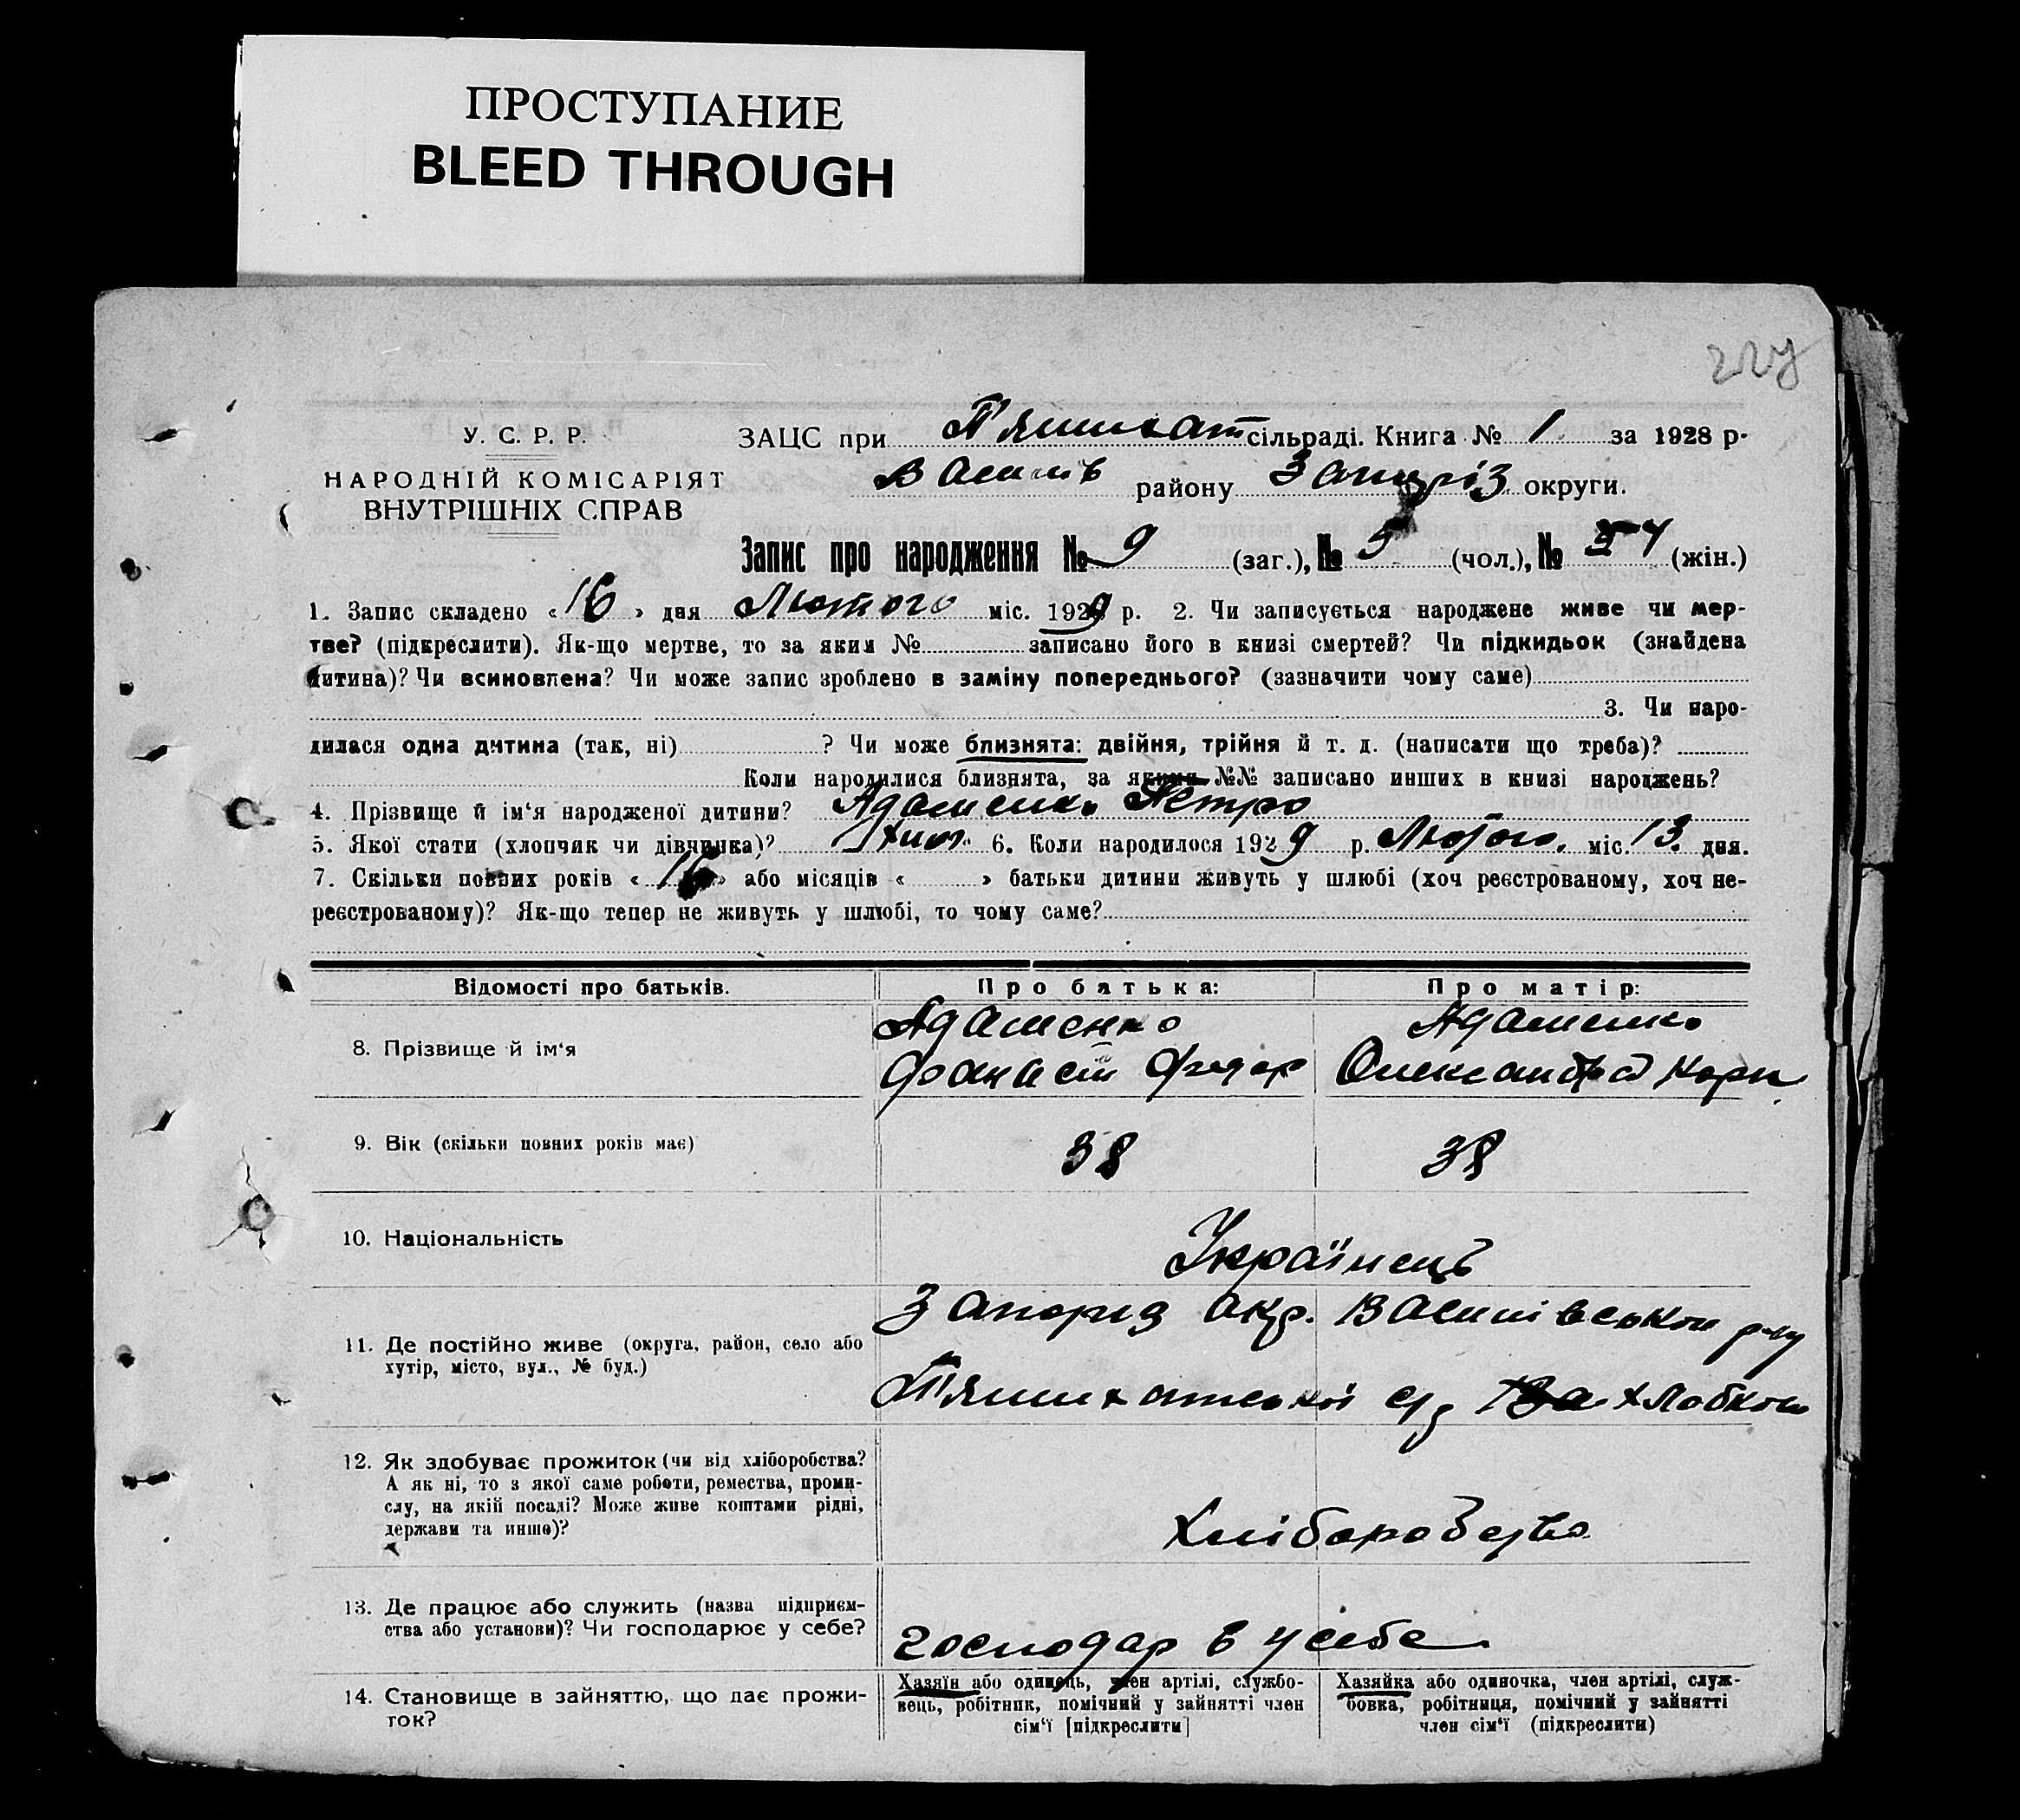 ПРОСТУПАНИЕ
BLEED THROUGH
227
У. С. Р. Р.
НАРОДНІЙ КОМІСАРІЯТ
ВНУТРІШНІХ СПРАВ
ЗАЦС при П'ятихат сільраді. Книга № 1 за 1928 р.
Василів району Запоріз. округи.
Запис про народження № 9 (заг.), № 5 (чол.), № 4 (жін.)
1. Запис складено « 16 » дня Лютого міс. 1929 р. 2. Чи записується народжене живе чи мер-
тве? (підкреслити). Як-що мертве, то за яким № записано його в книзі смертей? Чи підкидьок (знайдена
дитина)? Чи всиновлена? Чи може запис зроблено в заміну попереднього? (зазначити чому саме)
3. Чи наро-
дилася одна дитина (так, ні) ? Чи може близнята: двійня, трійня й т. д. (написати що треба)?
Коли народилися близнята, за якими №№ записано инших в книзі народжень?
4. Прізвище й ім‘я народженої дитини? Адаменко Петро
5. Якої стати (хлопчик чи дівчинка)? 6. Коли народилося 1929 р. Лютого. міс. 13. дня.
7. Скільки повних років « 16 » або місяців « » батьки дитини живуть у шлюбі (хоч реєстрованому, хоч не-
реєстрованому)? Як-що тепер не живуть у шлюбі, то чому саме?
Відомості про батьків.
Про батька:
Про матір:
8. Прізвище й ім‘я
Адаменко
Фанаст Федор
Адаменко
Олександра Корн.
9. Вік (скільки повних років має)
38
38
10. Національність
Українець
11. Де постійно живе (округа, район, село або
хутір, місто, вул., № буд.)
Запориз окр. Василівськой р-ну
П'ятихатської с/р х Лобков
12. Як здобуває прожиток (чи від хліборобства?
А як ні, то з якої саме роботи, ремества, проми-
слу, на якій посаді? Може живе коштами рідні,
держави та инше)?
Хліборобство
13. Де працює або служить (назва підприєм-
ства або установи)? Чи господарює у себе?
господар в у себе
14. Становище в зайняттю, що дає прожи-
ток?
Хазяїн або одинець, член артілі, службо-
вець, робітник, помічний у зайнятті член
сім‘ї [підкреслити]
Хазяйка або одиночка, член артілі, служ-
бовка, робітниця, помічний у зайнятті
член сім‘ї (підкреслити)